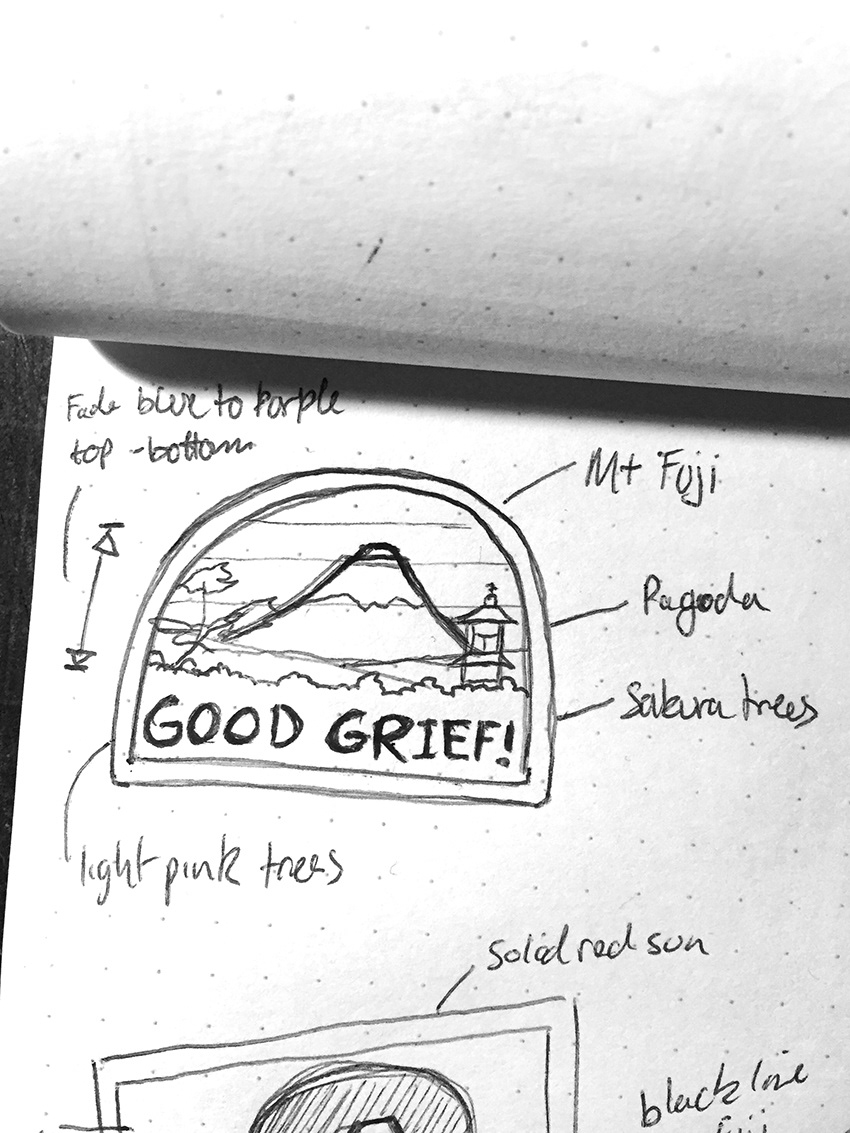 Fade blue to purple
top - bottom
Mt Fuji
Pagoda
Sakura trees
GOOD GRIEF!
light pink trees
solid red sun
black line
fuji